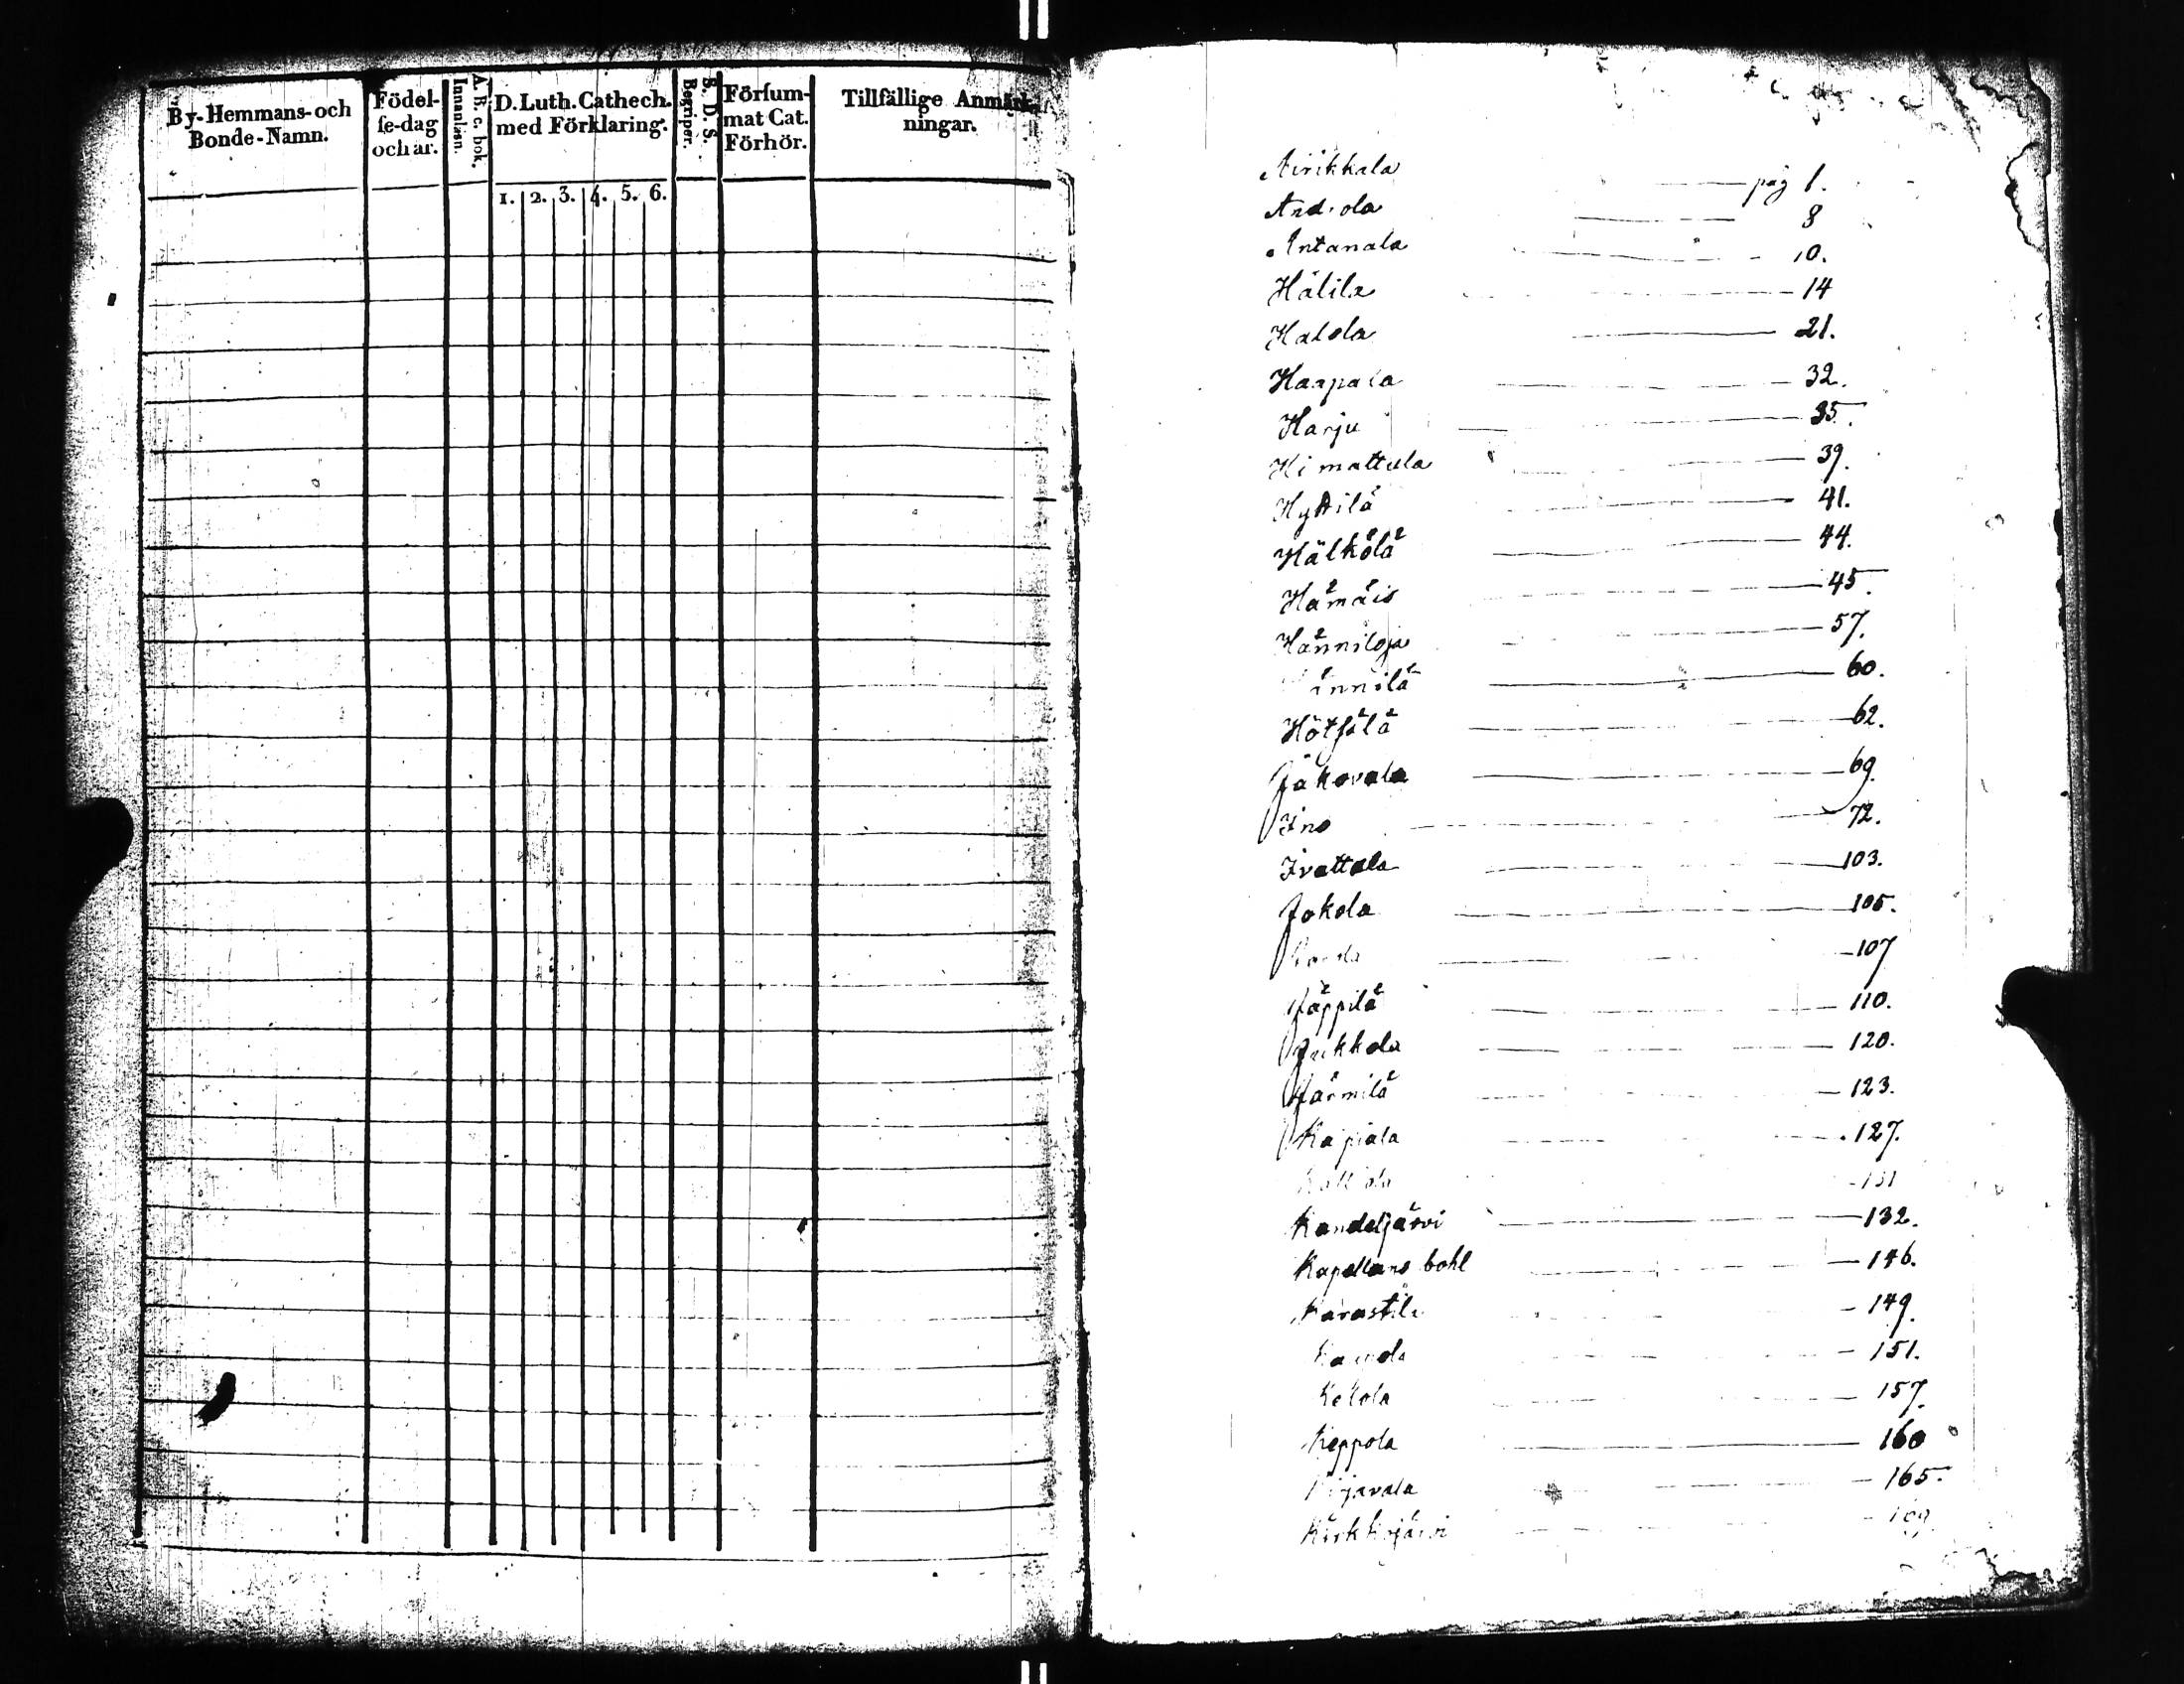 By-Hemmans-och Bonde-Namn.
Födel-ſe-dag och år.
A. B. c. bok. Innanläsn.
D. Luth. Cathech. med Förklaring.
1. 2. 3. 4. 5. 6.
S. D. S. Begriper.
Förſum-mat Cat. Förhör.
Tillfällige Anmärk-ningar.
Airikkala pag 1.
Androla 8
Antanala 10.
Hälilä 14
Halola 21.
Haapala 32.
Harju 35.
Himattula 39.
Hyttilä 41.
Hälkölä 44.
Hämäis 45.
Hänniloja 57.
60.
Hötſölä 62.
Jakovala 69.
Ino 72.
Ivattala 103.
Jokela 105.
107
Jäppilä 110.
Jukkola 120.
Järmilä 123.
Kapiala 127.
131
Kandeljärvi 132.
Kapellans bohl 146.
Karastila 149.
151.
Ketola 157.
Keppola 160
165.
Kirkkojärvi 169